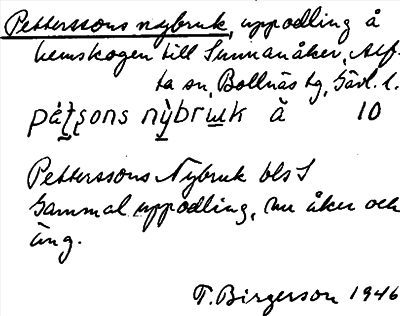 Petterssons nybruk, uppodling å
hemskogen till Sunnanåker, Alf-
ta sn, Bollnäs tg, Gävl. l.
pætʂons nỳbrɯk å 10
Petterssons Nybruk bls S
Gammal uppodling, nu åker och
äng.
T. Birgerson 1946